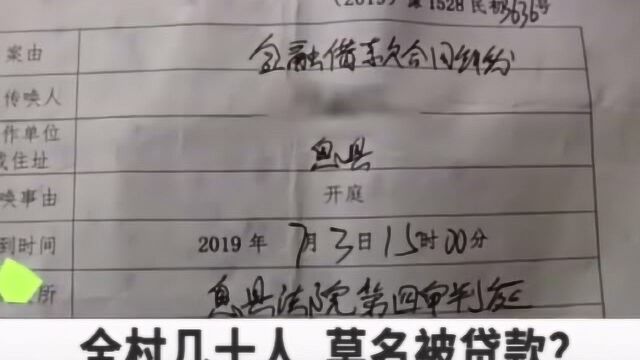 (2019)豫1528民初3636号
案由 金融借款合同纠纷
传唤人
作单位 息县
或住址
唤事由 开庭
到时间 2019年7月3日15时00分
所 息县法院第四审判庭
全村几十人 莫名被贷款?